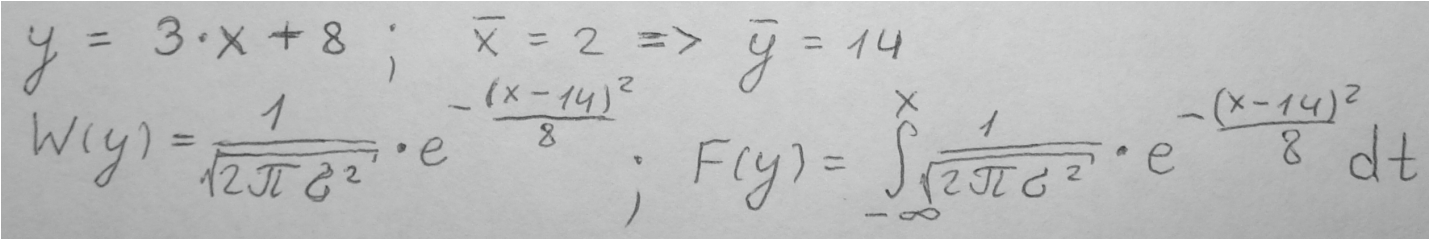 y = 3·x + 8 ; x̅ = 2 => y̅ = 14
W(y) = 1/√(2πσ²) · e^(-(x-14)²/8) ; F(y) = ∫_{-∞}^{x} 1/√(2πσ²) · e^(-(x-14)²/8) dt